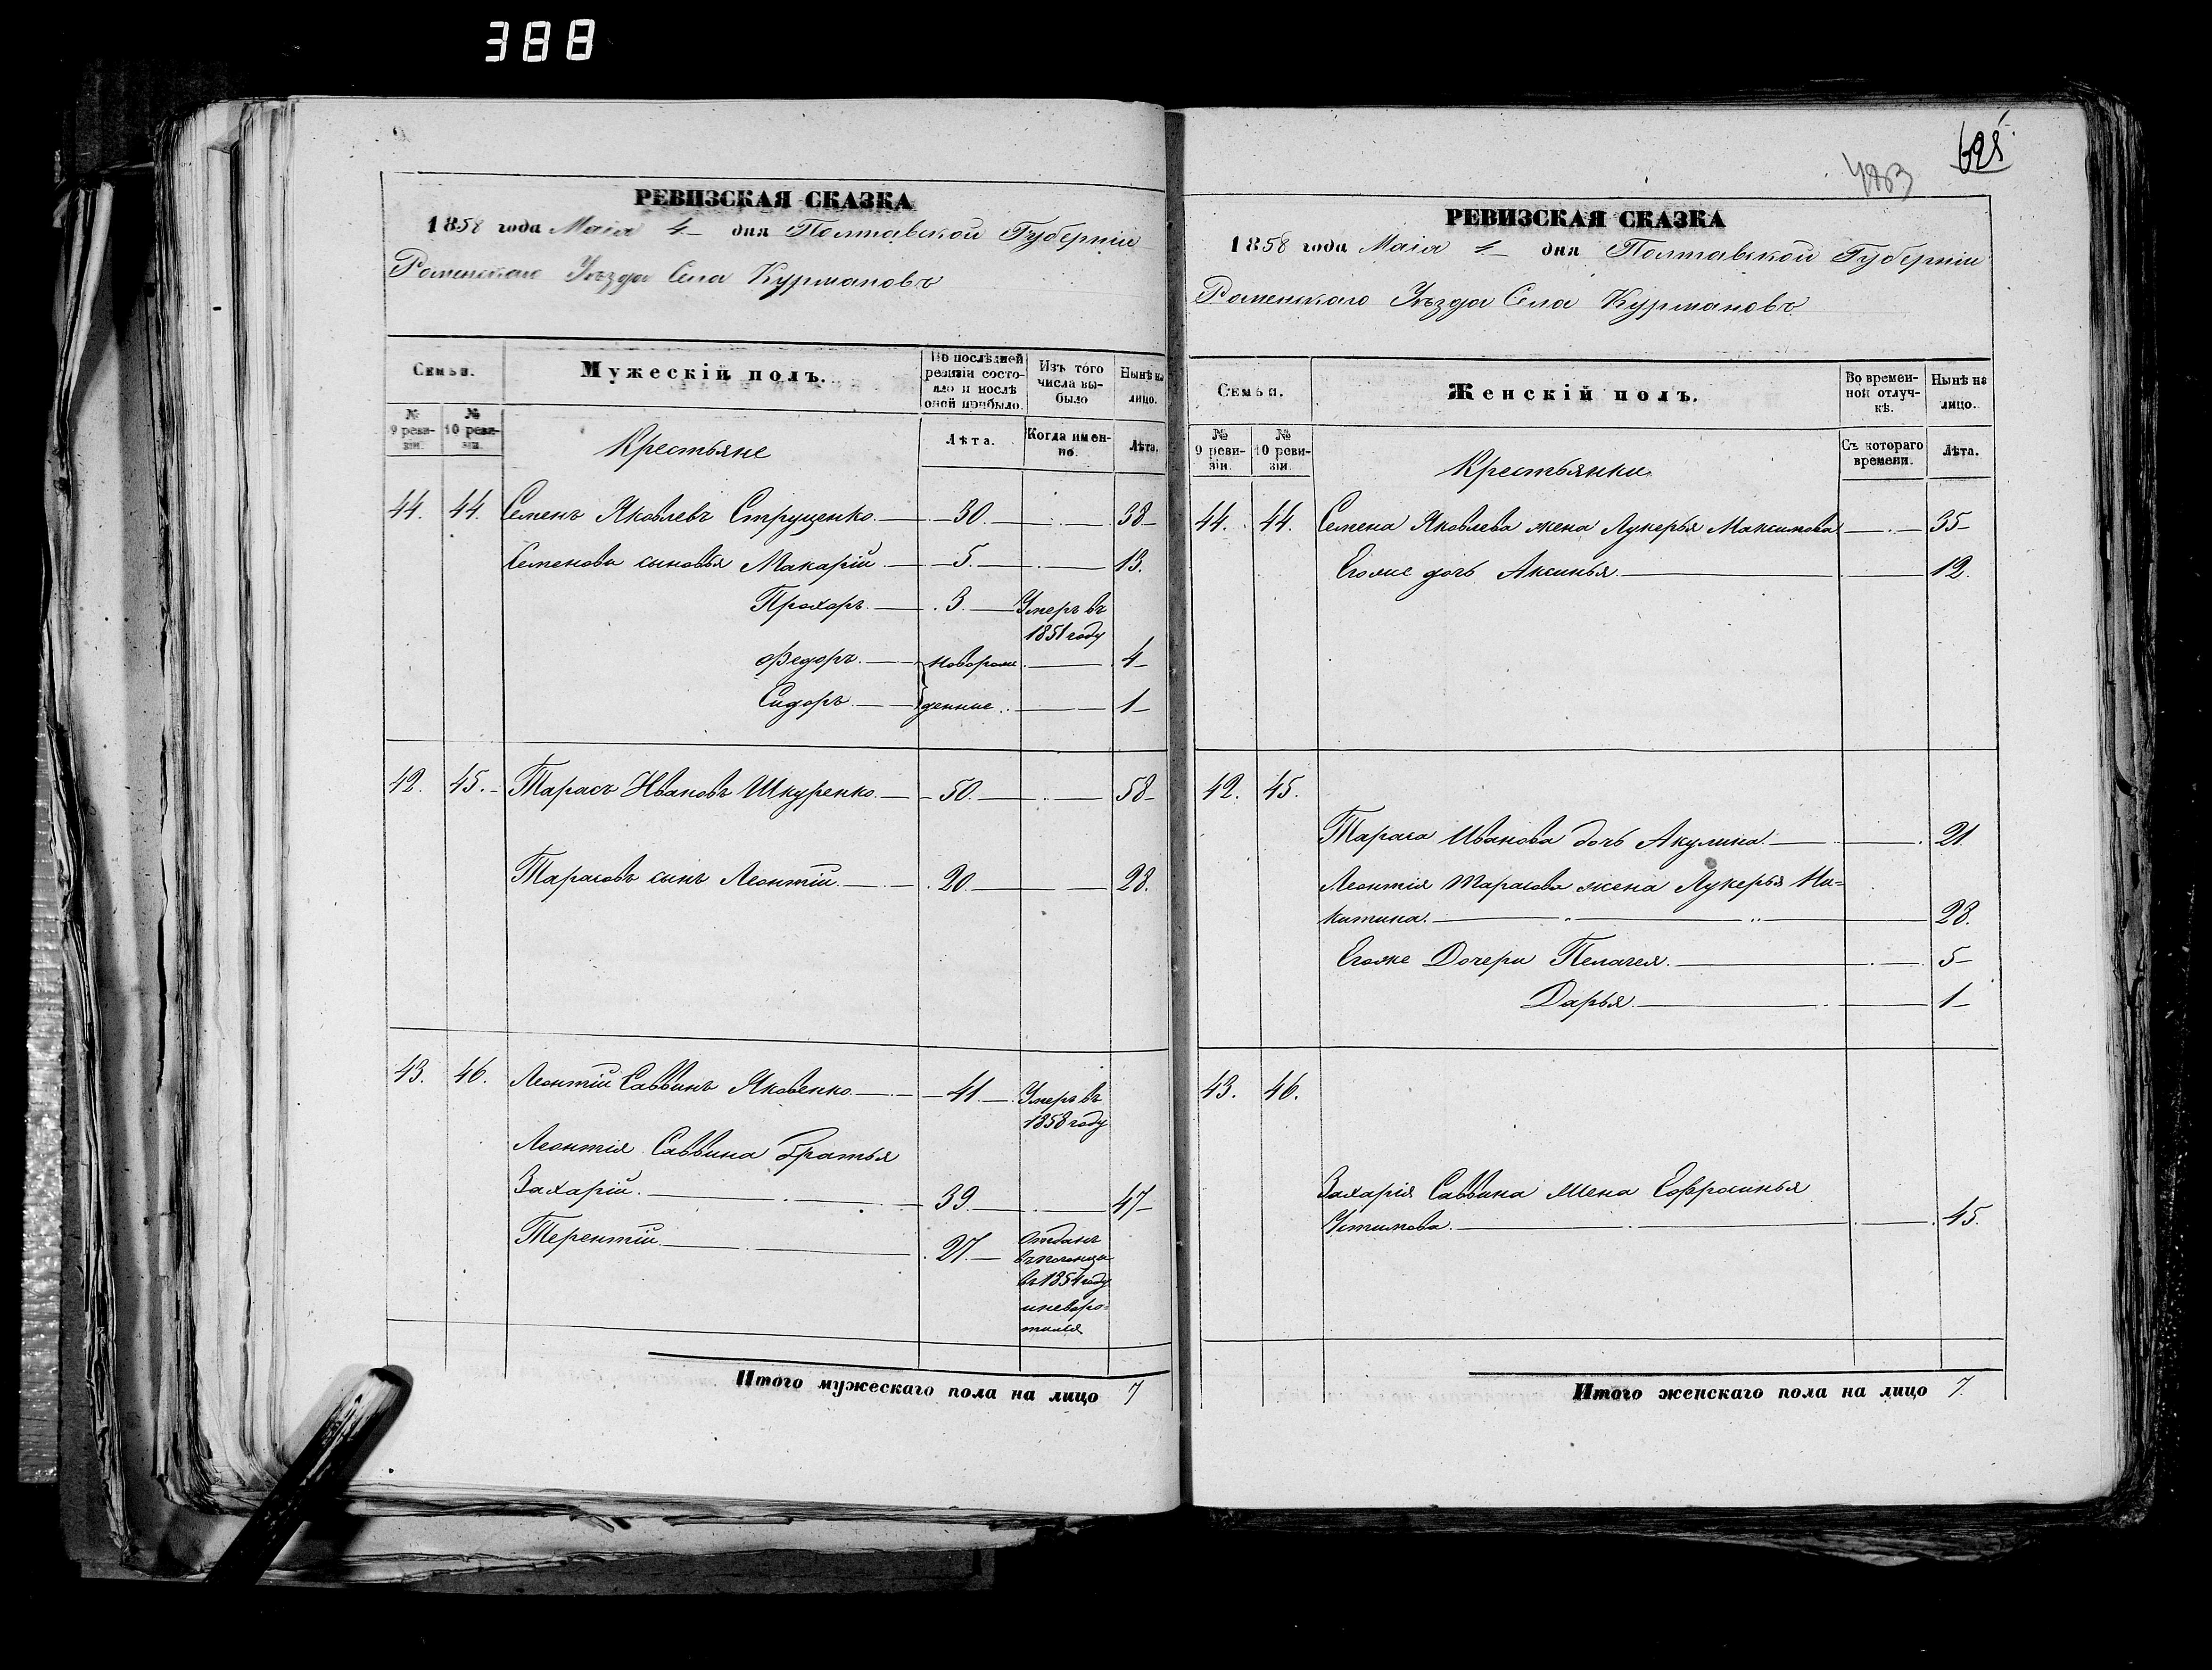 388
РЕВИЗСКАЯ СКАЗКА
1858 года Маія 4 дня Полтавской Губерніи
Роменскаго Уѣзда Села Курмановъ
Семьи.
Мужескій полъ.
По послѣдней ревизіи состояло и послѣ оной прибыло.
Изъ того числа выбыло
Нынѣ на лицо.
№ 9 ревизіи.
№ 10 ревизіи.
Крестьяне
Лѣта.
Когда именно.
Лѣта.
44. 44. Семенъ Яковлевъ Струценко 30. 38
Семеновы сыновья Макарій 5. 13.
Прохоръ 3. Умеръ въ
1851 году
Федоръ новорож 4
Сидоръ денные 1
42. 45. Тарасъ Ивановъ Шкуренко 50. 58
Тарасовъ сынъ Леонтій 20. 28.
43. 46. Леонтій Саввинъ Яковенко 41 Умеръ въ
1858 году
Леонтія Саввина братья
Захарій. 39 47
Терентій 27 Отданъ
въ погонцы
въ 1854 году
и неворо=
тился
Итого мужескаго пола на лицо 7
625
РЕВИЗСКАЯ СКАЗКА
1858 года Маія 4 дня Полтавской Губерніи
Роменскаго Уѣзда Села Курмановъ
Семьи.
Женскій полъ.
Во временной отлучкѣ.
Нынѣ на лицо.
№ 9 ревизіи.
№ 10 ревизіи.
Крестьянки
Съ котораго времени.
Лѣта.
44. 44. Семена Яковлева жена Лукерья Максимова 35
Егоже дочь Аксинья 12.
42. 45.
Тараса Иванова дочь Акулина 21
Леонтія Тарасова жена Лукерья Ни=
китина. 28.
Егоже Дочери Пелагея. 5
Дарья 1
43. 46.
Захарія Саввина жена Евфросинья
Устимова 45.
Итого женскаго пола на лицо 7.